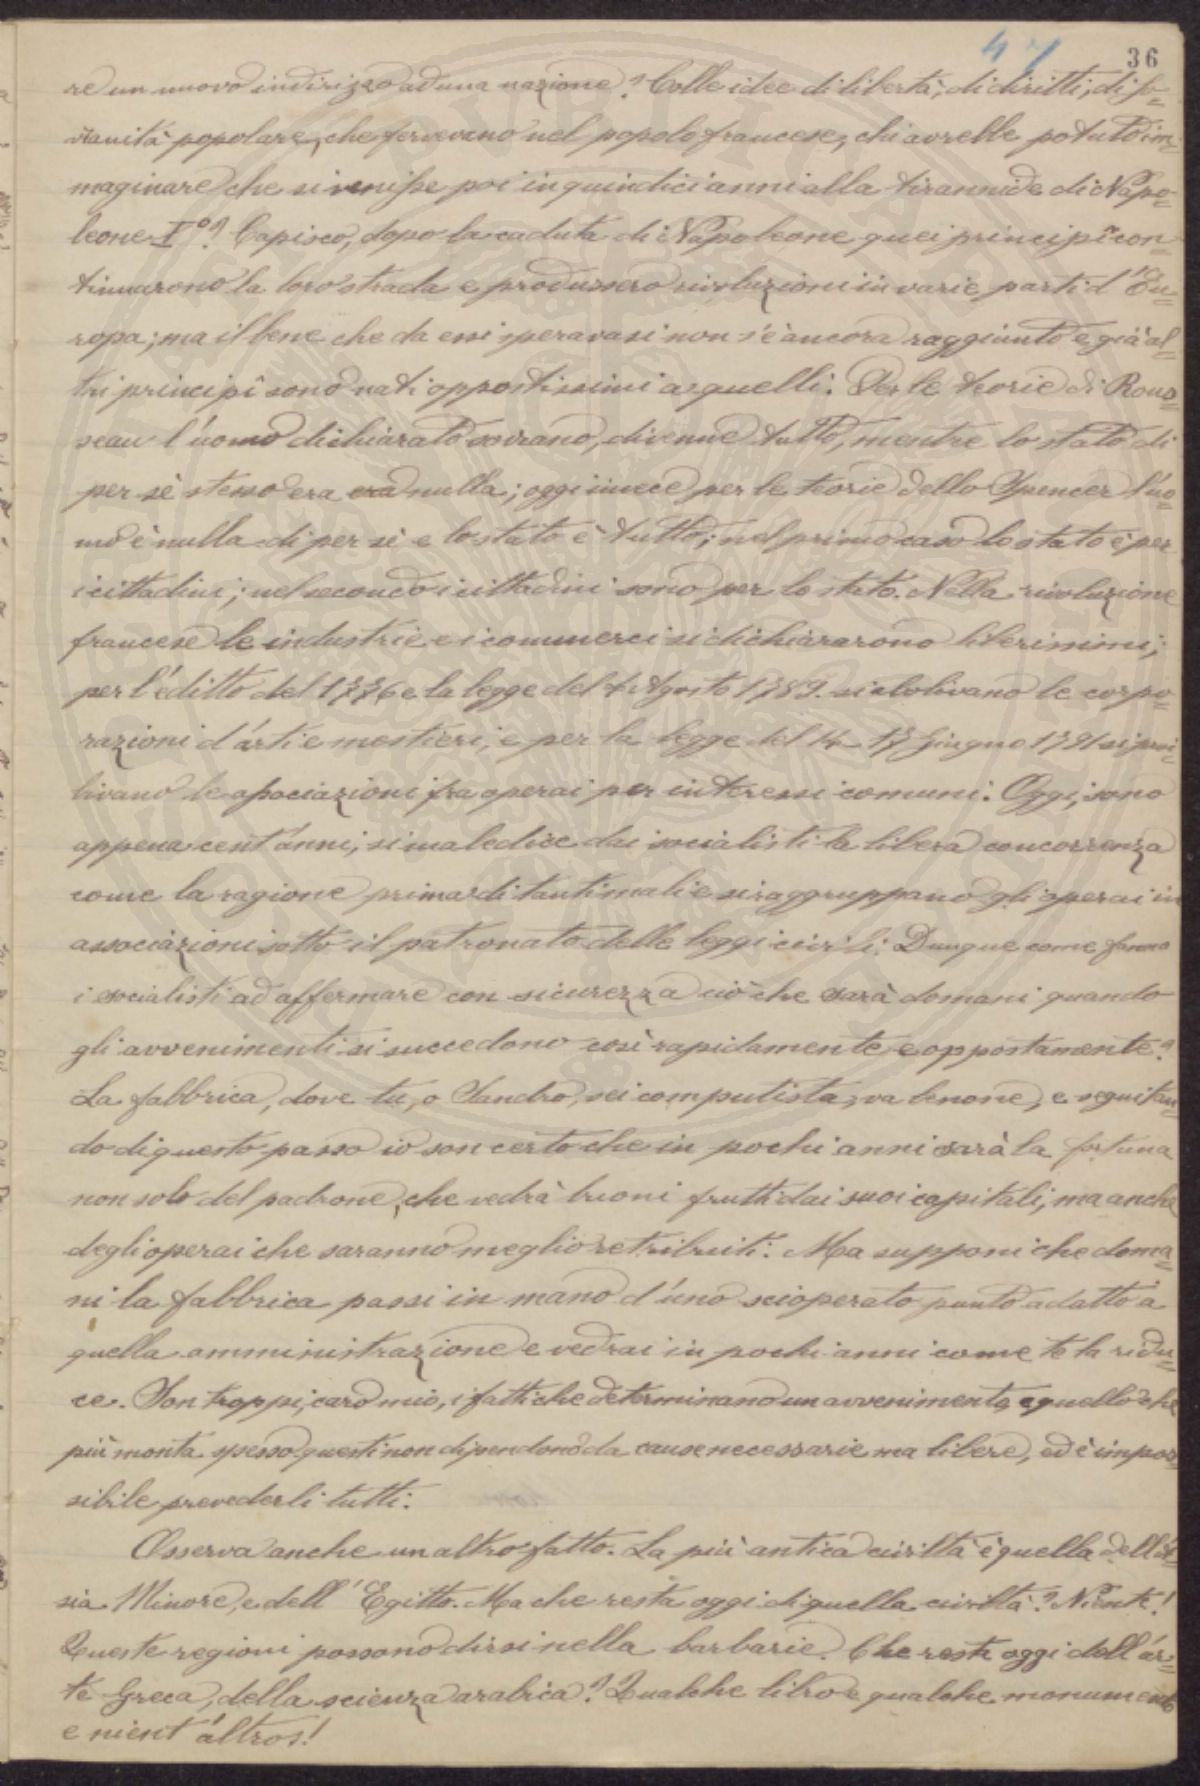 47 36
re un nuovo indirizzo ad una nazione? Colle idee di libertà, di diritti, di so-
vranità popolare, che fervevano nel popolo francese, chi avrebbe potuto im-
maginare che si venisse poi in quindici anni alla tirannide di Napo-
leone I°? Capisco, dopo la caduta di Napoleone quei principî con-
tinuarono la loro strada e produssero rivoluzioni in varie parti d'Eu-
ropa; ma il bene che da essi speravasi non s'è ancora raggiunto e già al-
tri principî sono nati oppostissimi a quelli. Per le teorie di Rous-
seau l'uomo dichiarato sovrano, divenne tutto, mentre lo stato di
per sè stesso era era nulla; oggi invece per le teorie dello Spencer l'uo-
mo è nulla di per sè e lo stato è tutto; nel primo caso lo stato è per
i cittadini; nel secondo i cittadini sono per lo stato. Nella rivoluzione
francese le industrie e i commerci si dichiararono liberissimi;
per l'editto del 1776 e la legge del 4 Agosto 1789 si abolivano le corpo-
razioni d'arti e mestieri, e per la legge del 14-17 Giugno 1791 si proi-
bivano le associazioni fra operai per interessi comuni. Oggi, sono
appena cent'anni, si maledice dai socialisti la libera concorrenza
come la ragione prima di tanti mali e si raggruppano gli operai in
associazioni sotto il patronato delle leggi civili. Dunque come fanno
i socialisti ad affermare con sicurezza ciò che sarà domani quando
gli avvenimenti si succedono così rapidamente e oppostamente?
La fabbrica, dove tu, o Sandro, sei computista, va benone, e seguitan-
do di questo passo io son certo che in pochi anni sarà la fortuna
non solo del padrone, che vedrà buoni frutti dai suoi capitali, ma anche
degli operai che saranno meglio retribuiti. Ma supponi che doma-
ni la fabbrica passi in mano d'uno scioperato punto adatto a
quella amministrazione e vedrai in pochi anni come te la ridu-
ce. Son troppi, caro mio, i fatti che determinano un avvenimento, e quello che
più monta spesso questi non dipendono da cause necessarie ma libere, ed è impos-
sibile prevederli tutti.
Osserva anche un altro fatto. La più antica civiltà è quella dell'A-
sia Minore, e dell'Egitto. Ma che resta oggi di quella civiltà? Niente!
Queste regioni possono dirsi nella barbarie. Che resta oggi dell'ar-
te Greca, della scienza arabica? Qualche libro e qualche monumento
e nient'altros!